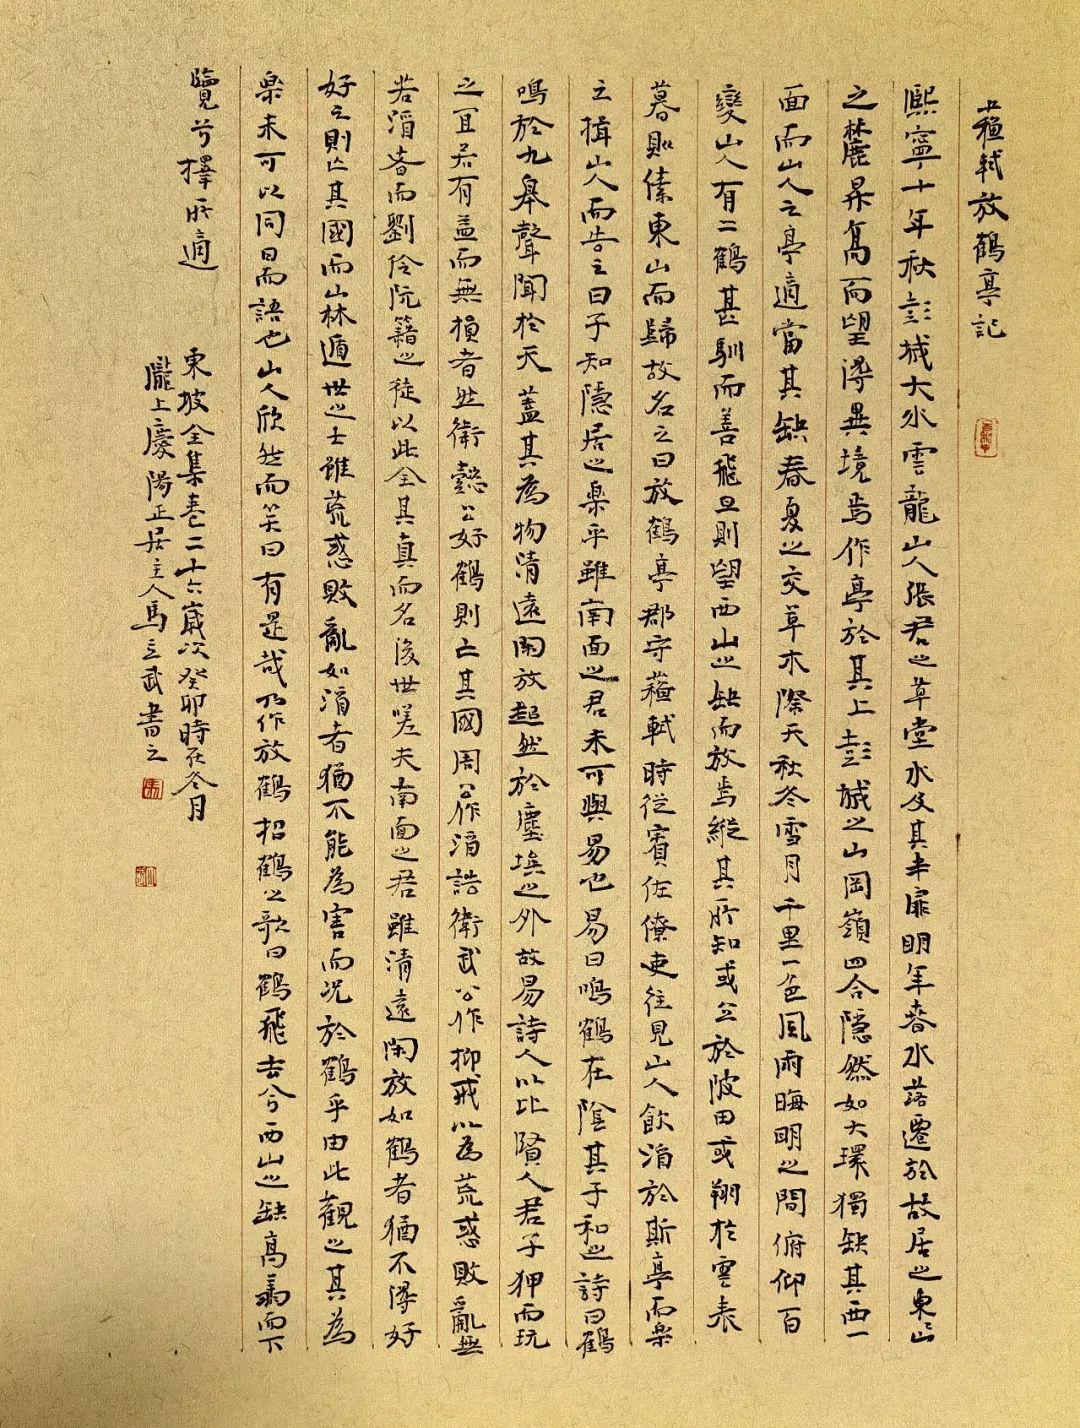 蘇軾放鶴亭記
熙寧十年秋彭城大水雲龍山人張君之草堂水及其半扉明年春水落遷於故居之東東山
之麓昇高而望得異境焉作亭於其上彭城之山岡嶺四合隱然如大環獨缺其西一
面而山人之亭適當其缺春夏之交草木際天秋冬雪月千里一色風雨晦明之間俯仰百
變山人有二鶴甚馴而善飛旦則望西山之缺而放焉縱其所知或立於陂田或翔於雲表
暮則傃東山而歸故名之曰放鶴亭郡守蘇軾時從賓佐僚吏往見山人飲酒於斯亭而樂
之揖山人而告之曰子知隱居之樂乎雖南面之君未可與易也易曰鳴鶴在陰其子和之詩曰鶴
鳴於九皋聲聞於天蓋其為物清遠閑放超然於塵埃之外故易詩人以比賢人君子狎而玩
之宜若有益而無損者然衛懿公好鶴則亡其國周公作酒誥衛武公作抑戒以為荒惑敗亂無
若酒者而劉伶阮籍之徒以此全其真而名後世嗟夫南面之君雖清遠閑放如鶴者猶不得好
好之則亡其國而山林遁世之士雖荒惑敗亂如酒者猶不能為害而況於鶴乎由此觀之其為
樂未可以同日而語也山人欣然而笑曰有是哉乃作放鶴招鶴之歌曰鶴飛去兮西山之缺高翔而下
覽兮擇所適
東坡全集卷二十六歲次癸卯時在冬月
隴上慶陽正居主人馬立武書之